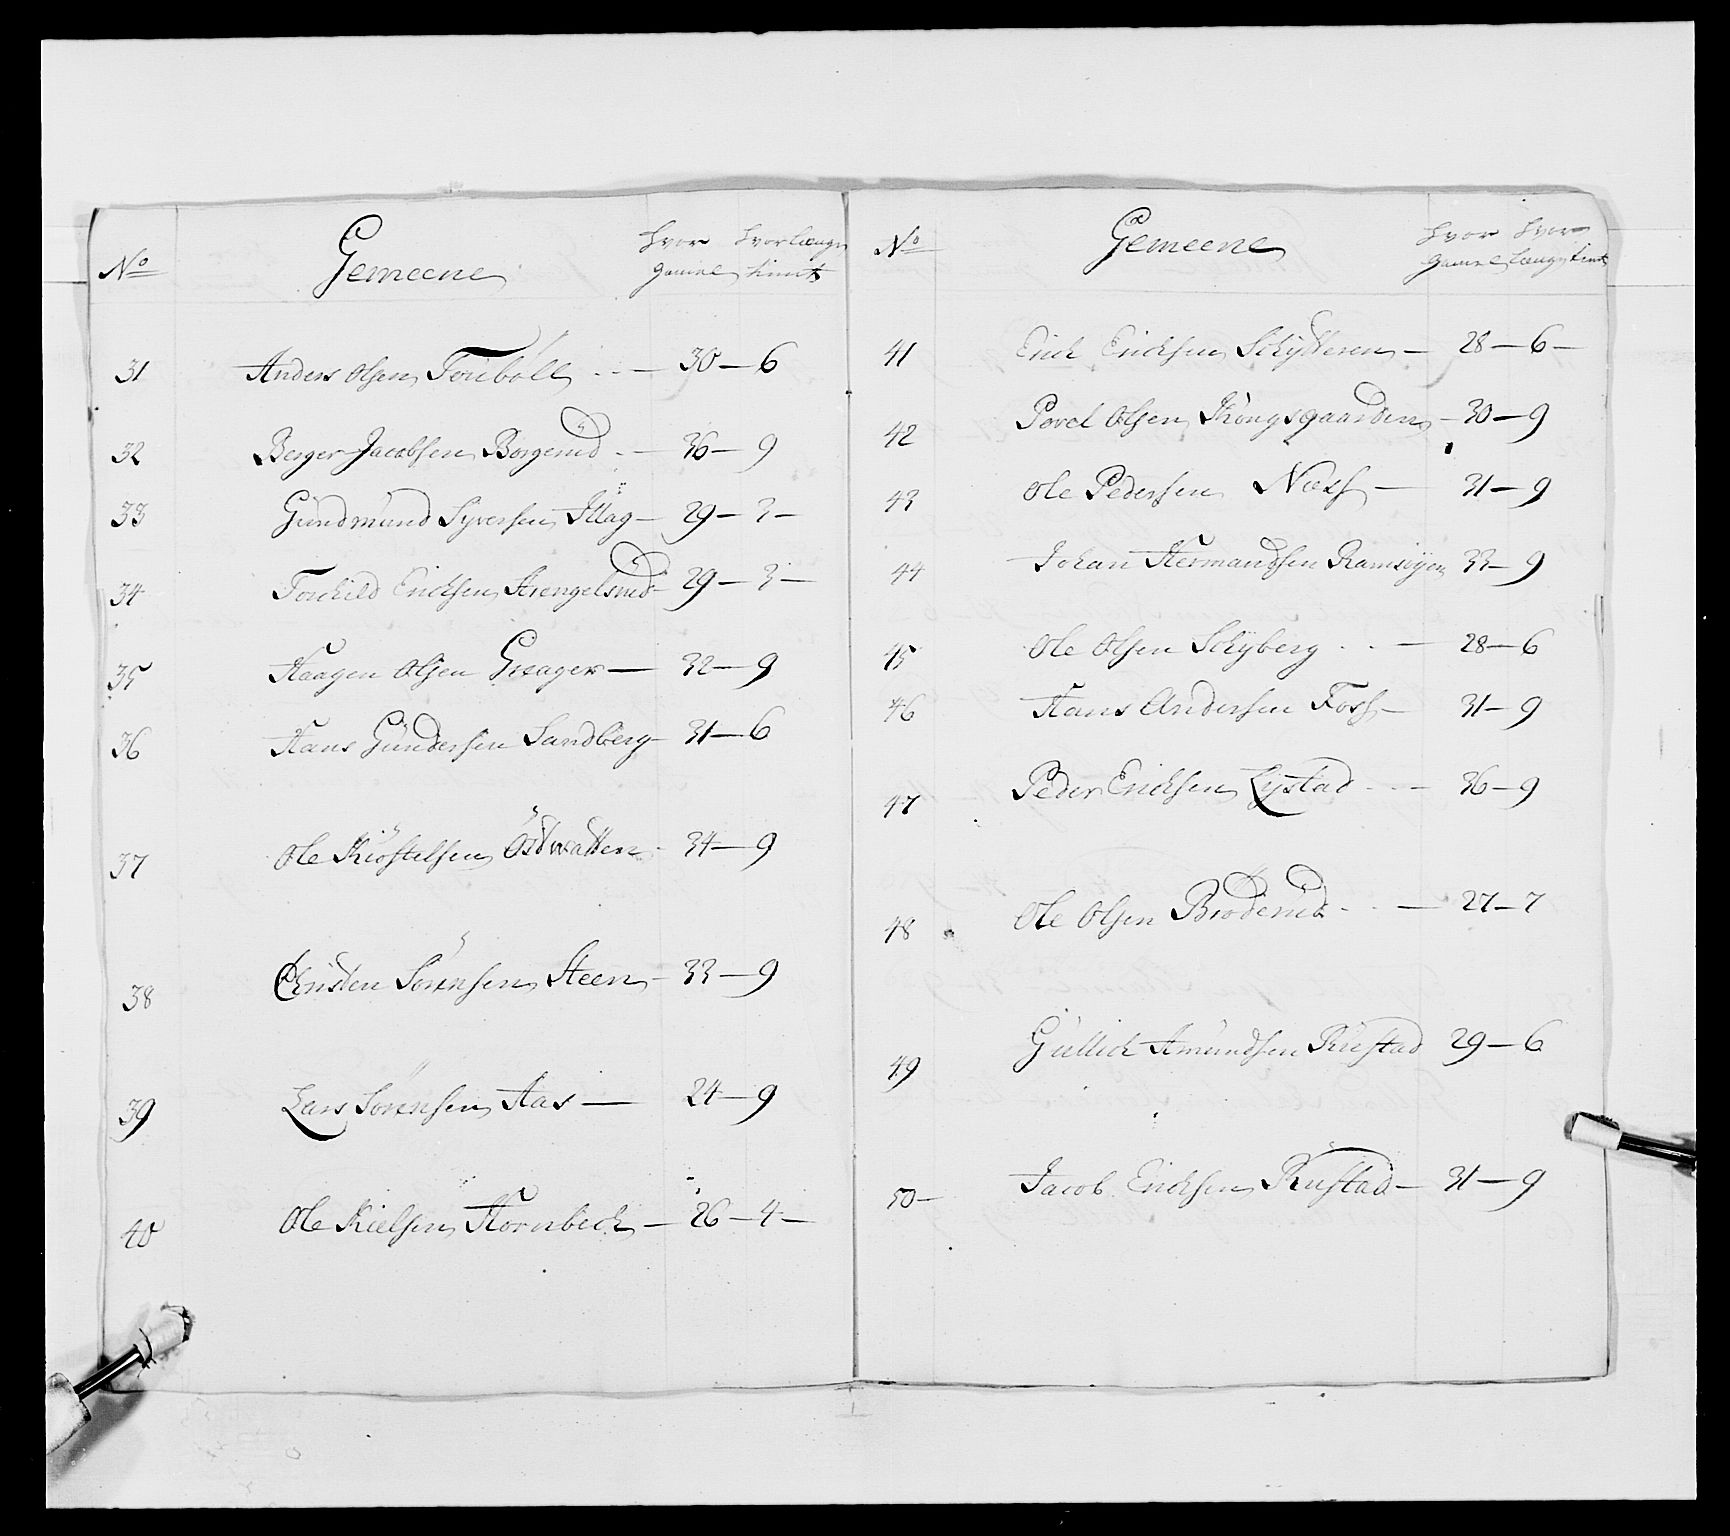 No Gemeene hvor gamel hvorlænge tient
31 Anders Olsen Foribøll 30 — 6
32 Berger Jacobsen Børgerud 36 — 9
33 Gundmund Syversen 29 — 3 —
34 Torchild Erichsen 29 — 3 —
35 Haagen Olsen Gnager — 32 — 9
36 Hans Gundersen Sandberg — 31 — 6
37 Ole Kiøstelsen 34 — 9
38 Christen Sørensen Steen — 33 — 9
39 Lars Sørensen Aas — 24 — 9
40 Ole Nielsen Hornbech — 26 — 4 —
No Gemeene hvor gamel hvor længe tient
41 Erich Erichsen Schytteren — 28 — 6 —
42 Povel Olsen Kongsgaarden — 30 — 9
43 Ole Pedersen Næss — 31 — 9
44 Johan Hermandsen 33 — 9
45 Ole Olsen Schyberg — 28 — 6
46 Hans Andersen Foss — 31 — 9
47 Peder Erichsen Lystad — 36 — 9
48 Ole Olsen Broderud — 27 — 7
49 Gullich Amundsen Rustad 29 — 6
50 — Jacob Erichsen Rustad — 31 — 9